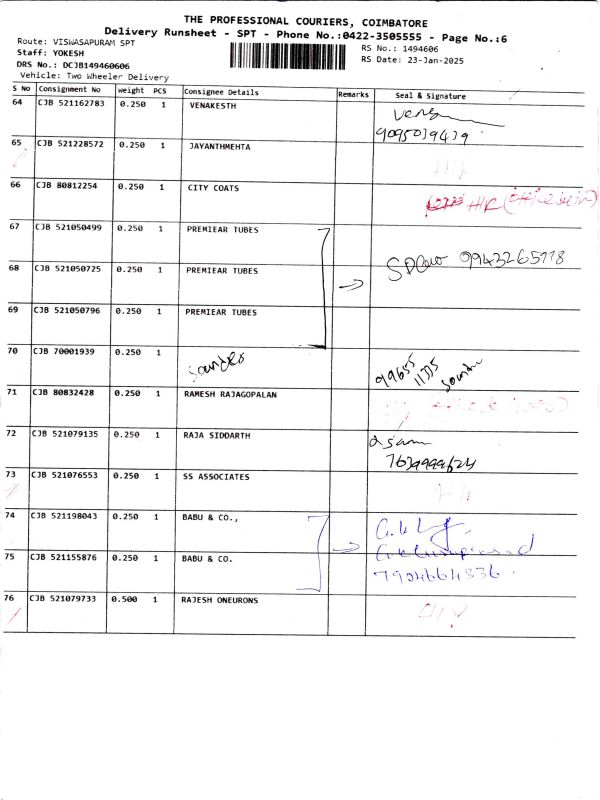 THE PROFESSIONAL COURIERS, COIMBATORE
Delivery Runsheet - SPT - Phone No.:0422-3505555 - Page No.:6
Route: VISWASAPURAM SPT
Staff: YOKESH
DRS No.: DCJB149460606
Vehicle: Two Wheeler Delivery
RS No.: 1494606
RS Date: 23-Jan-2025
S No Consignment No weight PCS Consignee Details Remarks Seal & Signature
64 CJB 521162783 0.250 1 VENAKESTH
9095039439
65 CJB 521228572 0.250 1 JAYANTHMEHTA
66 CJB 80812254 0.250 1 CITY COATS
67 CJB 521050499 0.250 1 PREMIEAR TUBES
68 CJB 521050725 0.250 1 PREMIEAR TUBES
69 CJB 521050796 0.250 1 PREMIEAR TUBES
70 CJB 70001939 0.250 1
99655
11335
71 CJB 80832428 0.250 1 RAMESH RAJAGOPALAN
72 CJB 521079135 0.250 1 RAJA SIDDARTH
73 CJB 521076553 0.250 1 SS ASSOCIATES
74 CJB 521198043 0.250 1 BABU & CO.,
75 CJB 521155876 0.250 1 BABU & CO.
7904664336
76 CJB 521079733 0.500 1 RAJESH ONEURONS